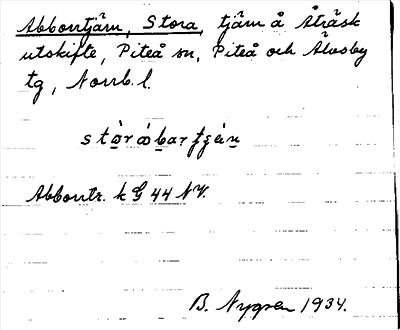 Abborrtjärn, Stora, tjärn å Åträsk
utskifte, Piteå sn, Piteå och Älvsby
tg, Norrb. l.
Abborrtr. k G 44 NV.
B. Nygren 1934.